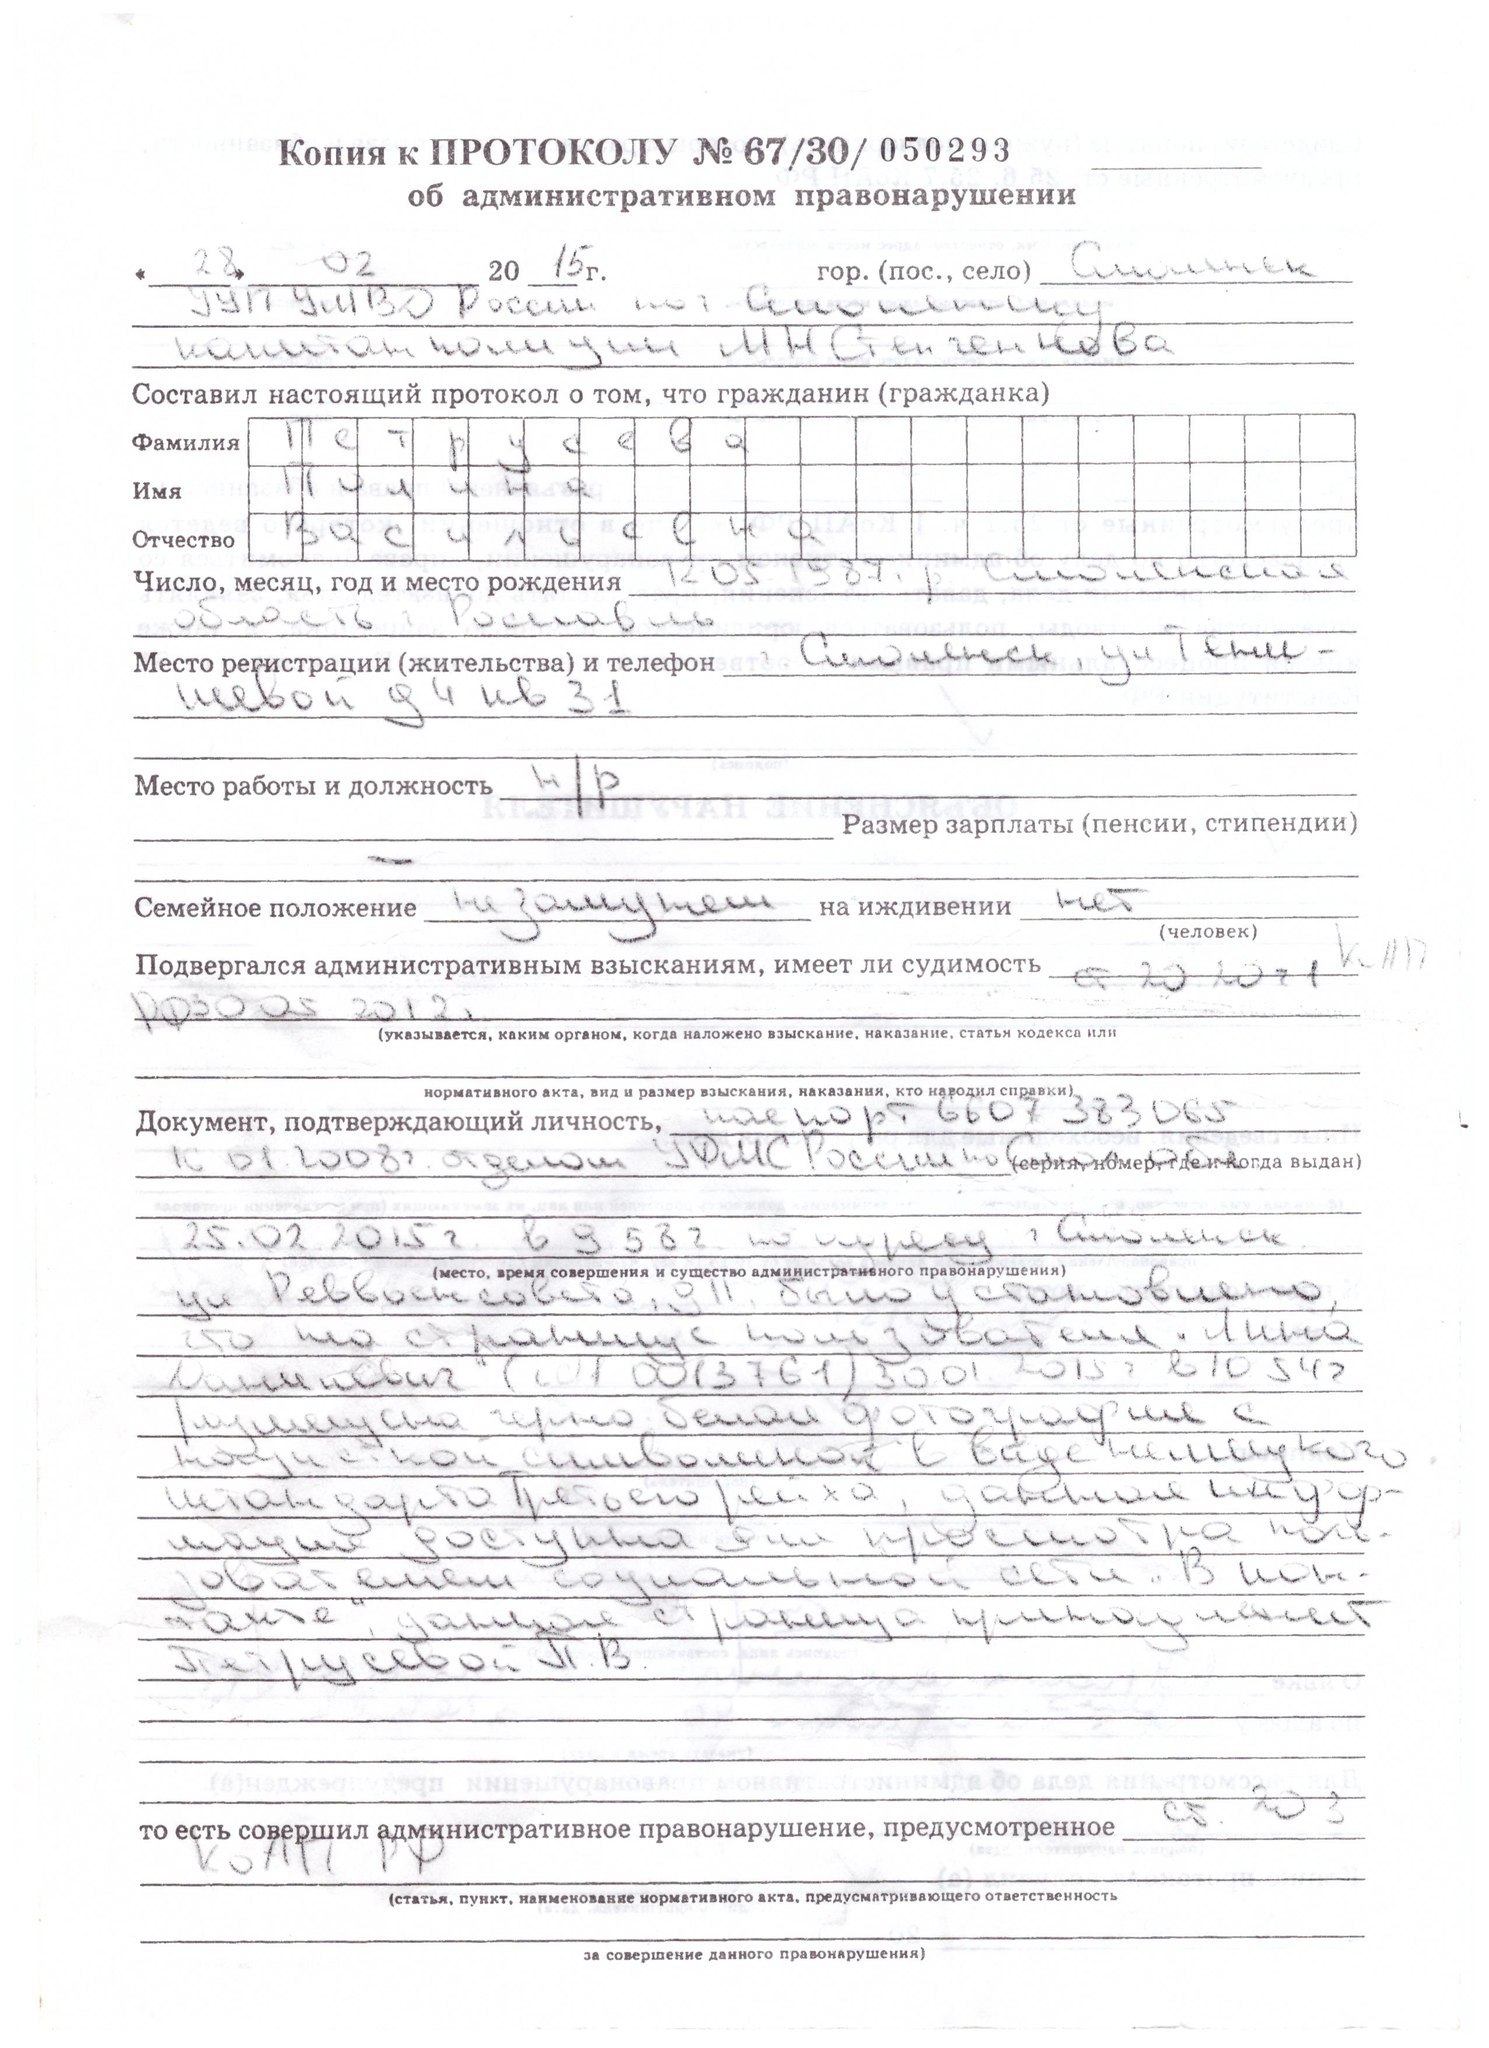 Копия к ПРОТОКОЛУ № 67/30/ 050293
об административном правонарушении
« 28 » 02 20 15 г. гор. (пос., село) Смоленск
УУП УМВД России по г Смоленску
капитан полиции М Н Степченкова
Составил настоящий протокол о том, что гражданин (гражданка)
Фамилия Петрусева
Имя Полина
Отчество Васильевна
Число, месяц, год и место рождения 05 1987г.р Смоленская
область г Рославль
Место регистрации (жительства) и телефон г Смоленск ул Тени-
шевой д 4 кв 31
Место работы и должность н/р
Размер зарплаты (пенсии, стипендии)
—
Семейное положение не замужем на иждивении нет
(человек)
Подвергался административным взысканиям, имеет ли судимость ст 20 20 ч 1 КоАП
РФ 30 05 2012г.
(указывается, каким органом, когда наложено взыскание, наказание, статья кодекса или
нормативного акта, вид и размер взыскания, наказания, кто наводил справки)
Документ, подтверждающий личность, паспорт 6607 383065
01.2008г. отделом УФМС России по обл
(серия, номер, где и когда выдан)
25.02 2015г. в 9 58 г по адресу г Смоленск
(место, время совершения и существо административного правонарушения)
ул Реввоенсовета, д 11, было установлено,
что на странице пользователя „Лина
Данилевич" 30 01. 2015г в 10 54
размещена черно-белая фотография с
нацисткой символикой в виде немецкого
штандарта Третьего рейха, данная инфор-
мация доступна для просмотра поль-
зователем социальной сети „В кон-
такте", данная страница принадлежит
Петрусевой П.В.
то есть совершил административное правонарушение, предусмотренное ст. 20 3
КоАП РФ
(статья, пункт, наименование нормативного акта, предусматривающего ответственность
за совершение данного правонарушения)